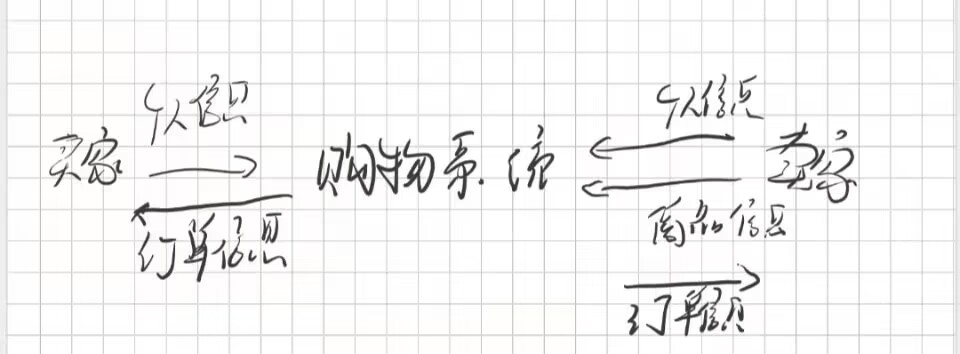 个人信息
个人信息
买家
购物系统
卖家
订单信息
商品信息
订单信息